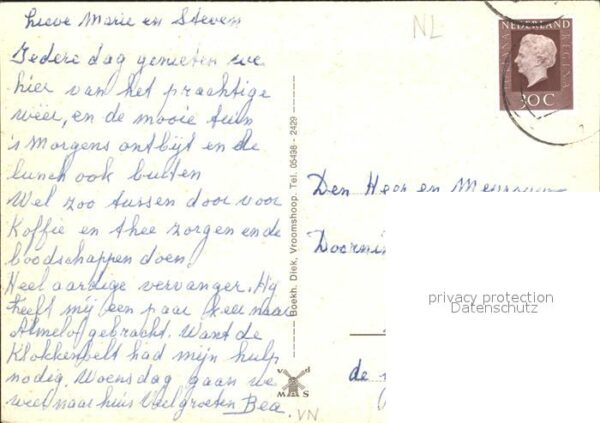 Lieve Marie en Steven
NL
NEDERLAND
JULIANA REGINA
30 C
Iedere dag genieten we
hier van het prachtige
weer, en de mooie tuin
's Morgens ontbijt en de
lunch ook buiten
Wel zoo tussen door voor
Koffie en thee zorgen en de
boodschappen doen.
Heel aardige vervanger. Hij
heeft mij een paar keer naar
Almelo gebracht. Want de
Klokkenbelt had mijn hulp
nodig. Woensdag gaan we
weer naar huis Veel groeten Bea.
Boekh. Diek, Vroomshoop. Tel. 05498 - 2429
v d
M S
VN
Den Heer en Mevrouw
Doorni
privacy protection
Datenschutz
de